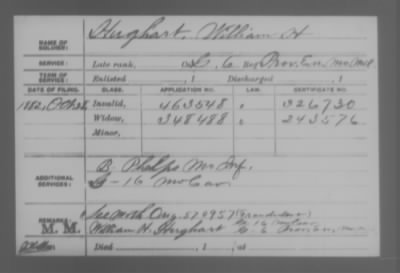 NAME OF SOLDIER: Hughart, William H
SERVICE: Late rank, Co. G, 6 Reg't Prov. Enr. Mo. Mil.
TERM OF SERVICE: Enlisted , 1 Discharged , 1
DATE OF FILING. CLASS. APPLICATION NO. LAW. CERTIFICATE NO.
1882, Oct 26 Invalid, 463548 326730
Widow, 348488 243576
Minor,
ADDITIONAL SERVICES: B, Phelps Mo Inf.
G-16 Mo Cav
REMARKS: See Moth. Orig. 570957 (Grandson)
M. M. William H. Hughart G. 16 Mo Cav
Died , 1 at